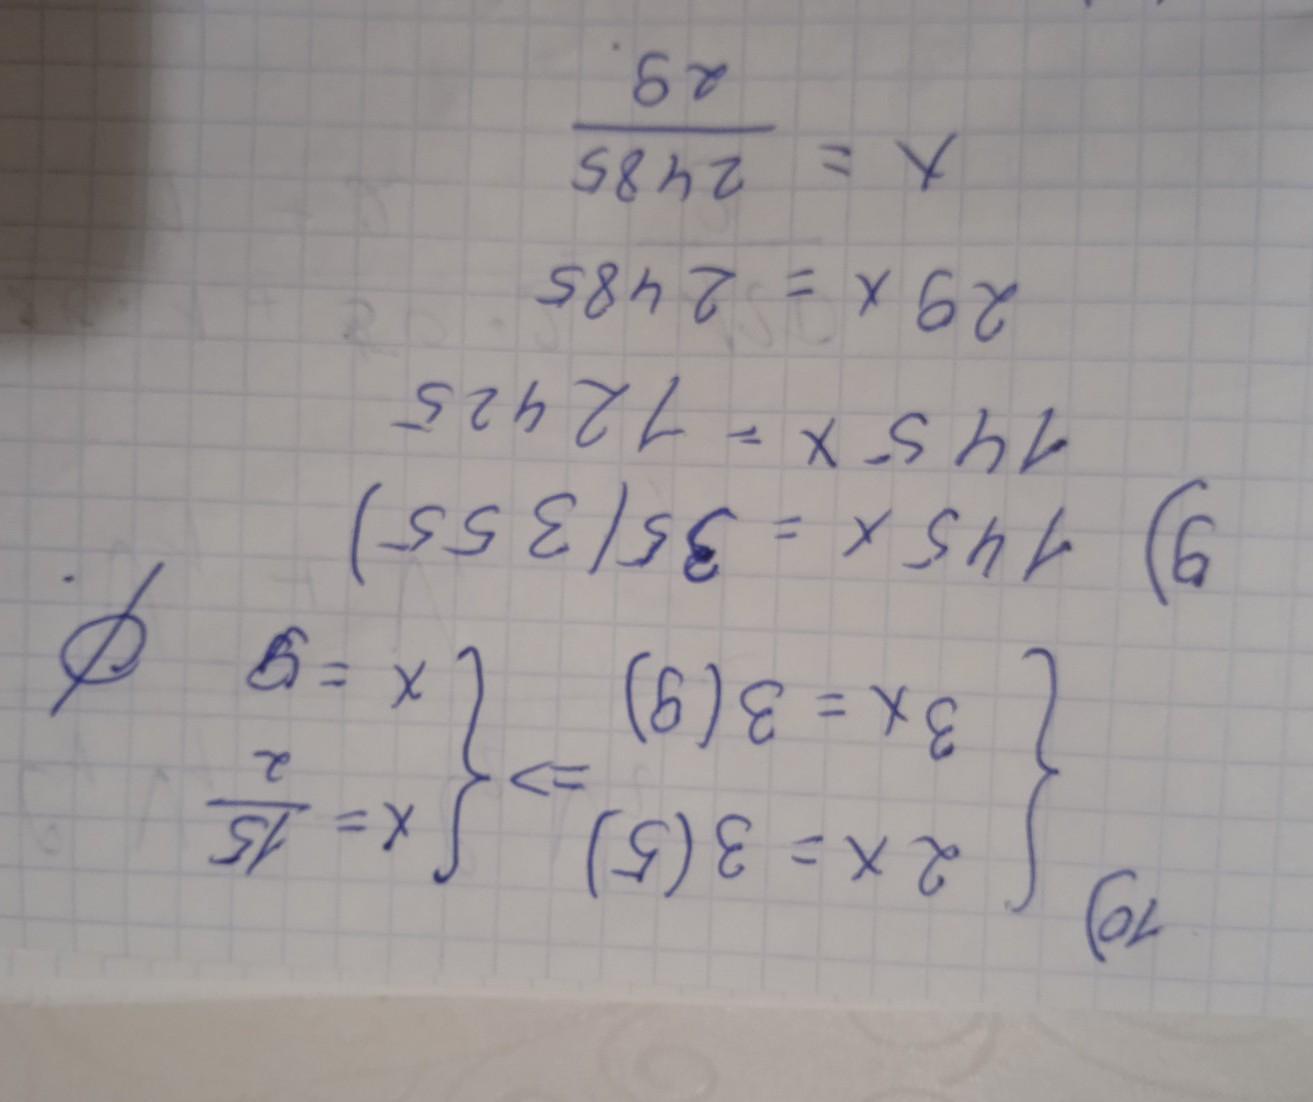 10) { 2x = 3(5) => { x = 15/2
3x = 3(9) x = 9 ∅
9) 145x = 35(355)
145x = 12425
29x = 2485
x = 2485/29